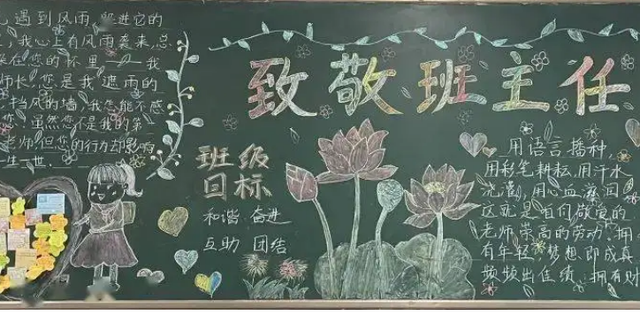 致敬班主任
遇到风雨,躲进它的
我心上有风雨袭来,总
在您的怀里——我
师长,您是我遮雨的
挡风的墙,我怎能不感
虽然您不是我的第一
老师,但您的行为却影响
一生一世。
班级
目标
和谐 奋进
互助 团结
用语言播种,
用彩笔耕耘,用汗水
浇灌,用心血滋润,
这就是咱们敬爱的
老师崇高的劳动。拥
有年轻,梦想即成真
频频出佳绩,拥有财